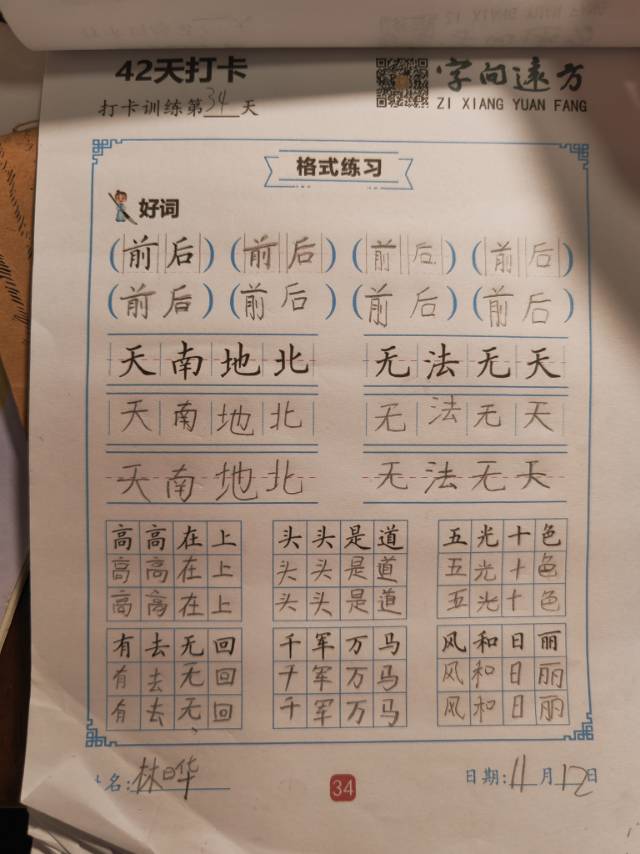 42天打卡
字向远方
ZI XIANG YUAN FANG
打卡训练第34天
格式练习
好词
(前后) (前后) (前后) (前后)
(前后) (前后) (前后) (前后)
天南地北 无法无天
天南地北 无法无天
天南地北 无法无天
高高在上 头头是道 五光十色
高高在上 头头是道 五光十色
高高在上 头头是道 五光十色
有去无回 千军万马 风和日丽
有去无回 千军万马 风和日丽
有去无回 千军万马 风和日丽
名:林日华
34
日期:11月12日